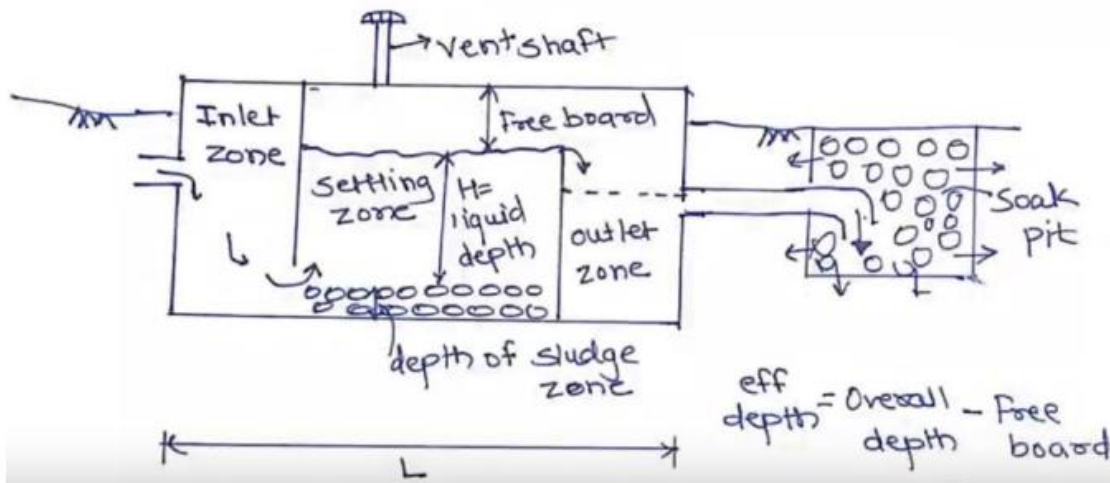 Vent shaft
Inlet
zone
Free board
settling
zone
H=
liquid
depth
outlet
zone
soak
pit
depth of sludge
zone
eff
depth = Overall
depth - Free
board
L